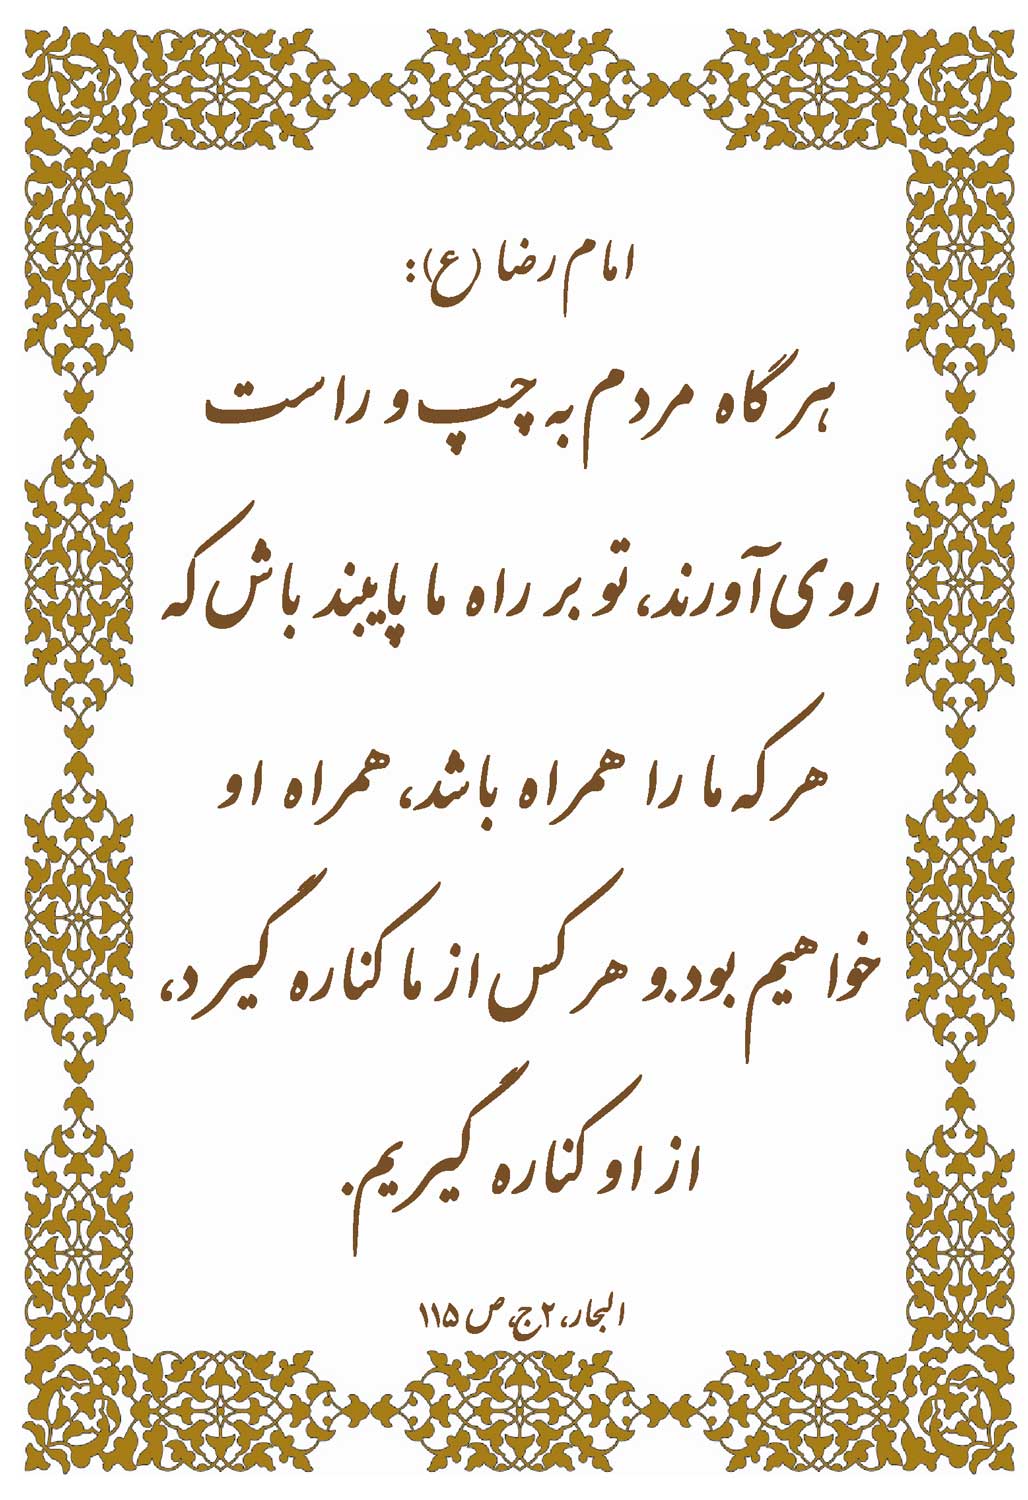 امام رضا (ع):
هر گاه مردم به چپ و راست
روی آورند، تو بر راه ما پایبند باش که
هر که ما را همراه باشد، همراه او
خواهیم بود.و هر کس از ما کناره گیرد،
از او کناره گیریم.
البحار، ۲ ج، ص ۱۱۵